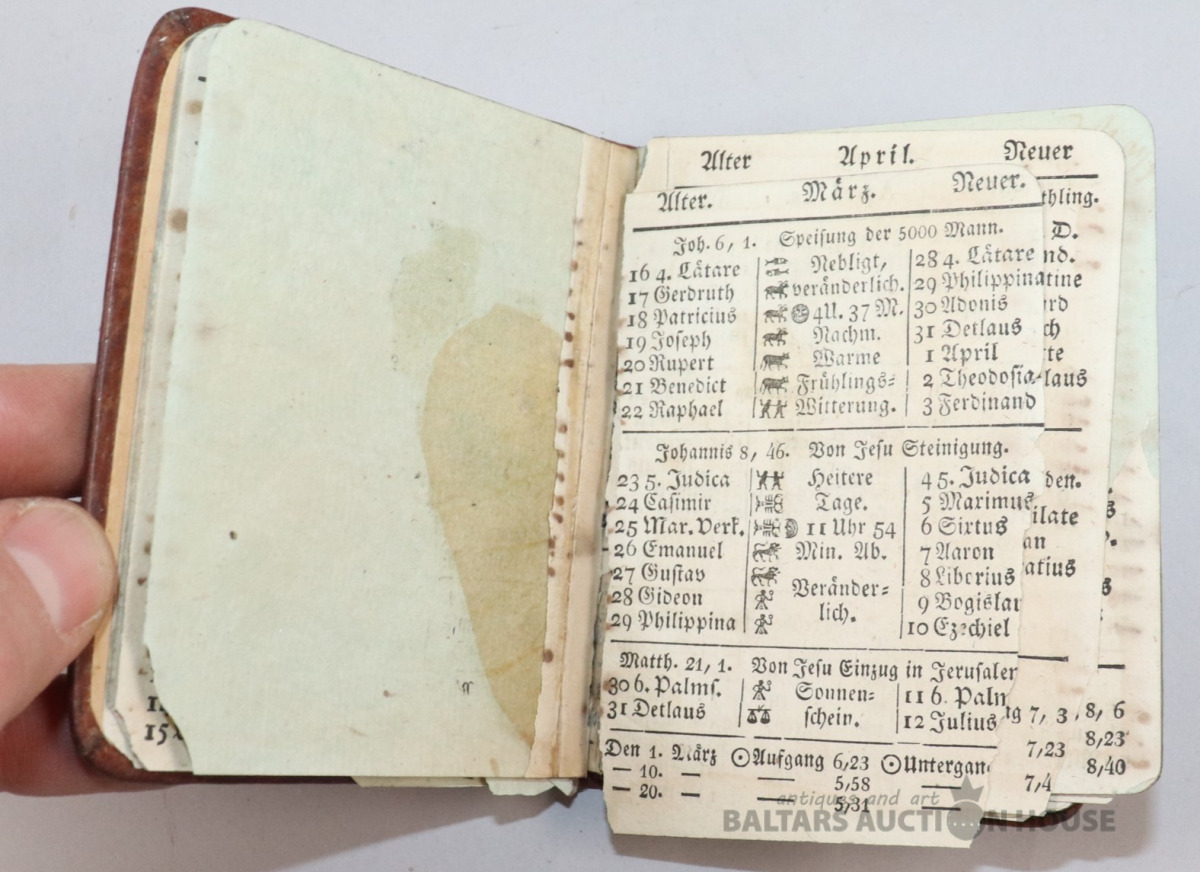 Alter April. Neuer
Alter. März. Neuer.
thling.
Joh. 6, 1. Speisung der 5000 Mann. D.
16 4. Lätare Nebligt, 28 4. Lätare nd.
17 Gerdruth veränderlich. 29 Philippina tine
18 Patricius 4 U. 37 M. 30 Adonis rd
19 Joseph Nachm. 31 Detlaus ch
20 Rupert Warme 1 April te
21 Benedict Frühlings= 2 Theodosia laus
22 Raphael Witterung. 3 Ferdinand
Johannis 8, 46. Von Jesu Steinigung.
23 5. Judica Heitere 4 5. Judica den.
24 Casimir Tage. 5 Marimus
25 Mar. Verk. 11 Uhr 54 6 Sixtus ilate
26 Emanuel Min. Ab. 7 Aaron an
27 Gustav Veränder= 8 Liborius atius
28 Gideon lich. 9 Bogislar
29 Philippina 10 Ezechiel
Matth. 21, 1. Von Jesu Einzug in Jerusalem
30 6. Palms. Sonnen= 11 6. Palm
31 Detlaus schein. 12 Julius
g 7, 3 8, 6
Den 1. März ☉Aufgang 6,23 ☉Untergan 7,23 8,23
— 10. — — 5,58 — 7,4 8,40
— 20. — — 5,31 —
15
antiques and art
BALTARS AUCTION HOUSE